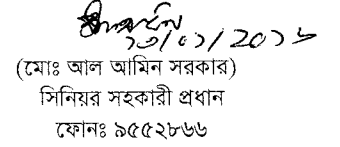 ১৩/০১/২০১৬
(মোঃ আল আমিন সরকার)
সিনিয়র সহকারী প্রধান
ফোনঃ ৯৫৫২৮৬৬